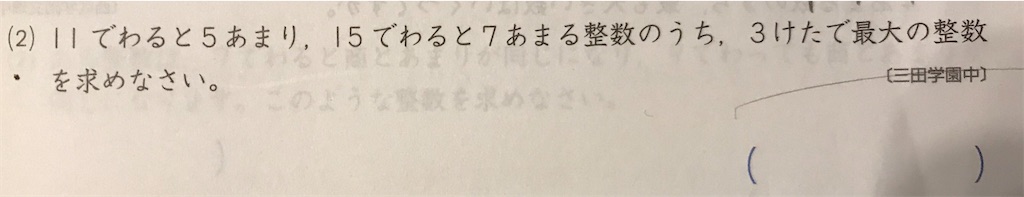 (2) 11でわると5あまり，15でわると7あまる整数のうち，3けたで最大の整数
を求めなさい。
〔三田学園中〕
(　　　)